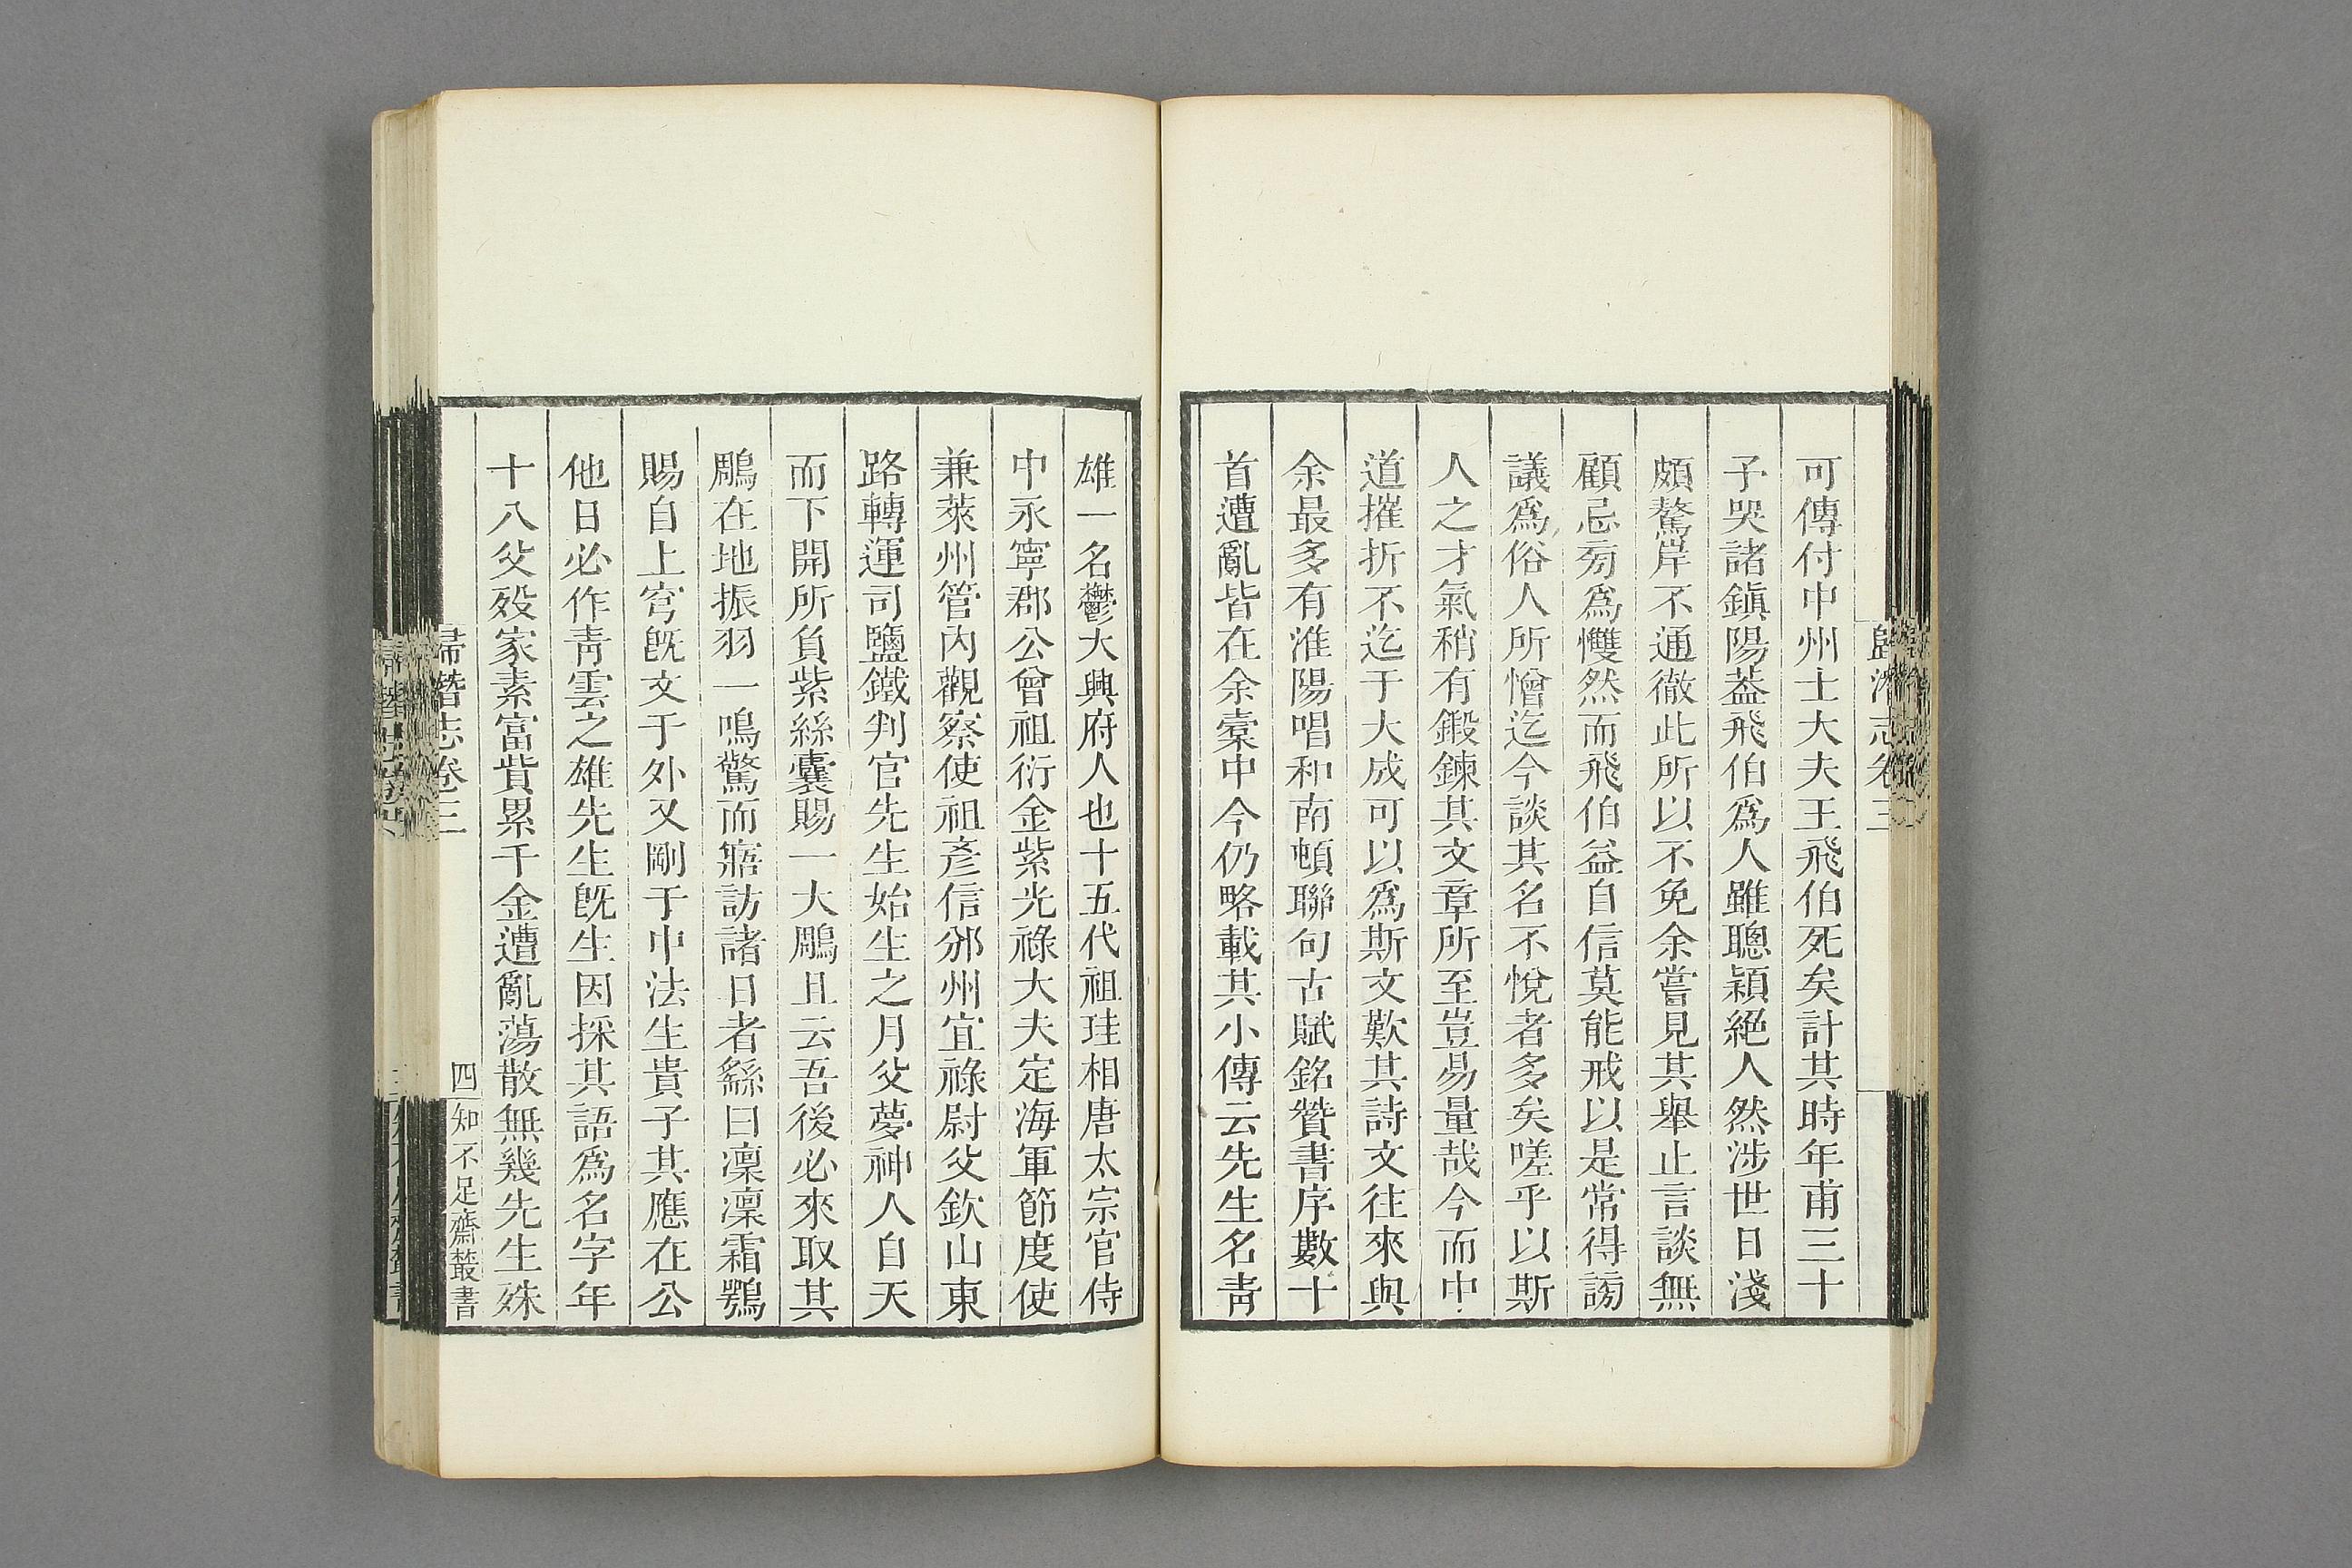 歸潛志卷三
可傳付中州士大夫王飛伯死矣計其時年甫三十
子哭諸鎭陽葢飛伯爲人雖聰穎絕人然涉世日淺
頗驁岸不通徹此所以不免余嘗見其舉止言談無
顧忌菊爲慢然而飛伯益自信莫能戒以是常得謗
議爲俗人所憎迄今談其名不悅者多矣嗟乎以斯
人之才氣稍有鍛鍊其文章所至豈易量哉今而中
道摧折不迄于大成可以爲斯文歎其詩文往來與
余最多有淮陽唱和南頓聯句古賦銘贊書序數十
首遭亂皆在余槖中今仍略載其小傳云先生名青
雄一名鬱大興府人也十五代祖珪相唐太宗官侍
中永寧郡公曾祖衍金紫光祿大夫定海軍節度使
兼萊州管內觀察使祖彥信邠州宜祿尉父欽山東
路轉運司鹽鐵判官先生始生之月父夢神人自天
而下開所負紫絲囊賜一大鵰且云吾後必來取其
鵰在地振羽一鳴驚而寤訪諸日者繇曰凜凜霜鶚
賜自上穹旣文于外又剛于中法生貴子其應在公
他日必作青雲之雄先生旣生因採其語爲名字年
十八父歿家素富貲累千金遭亂蕩散無幾先生殊
歸潛志卷三
四
知不足齋叢書